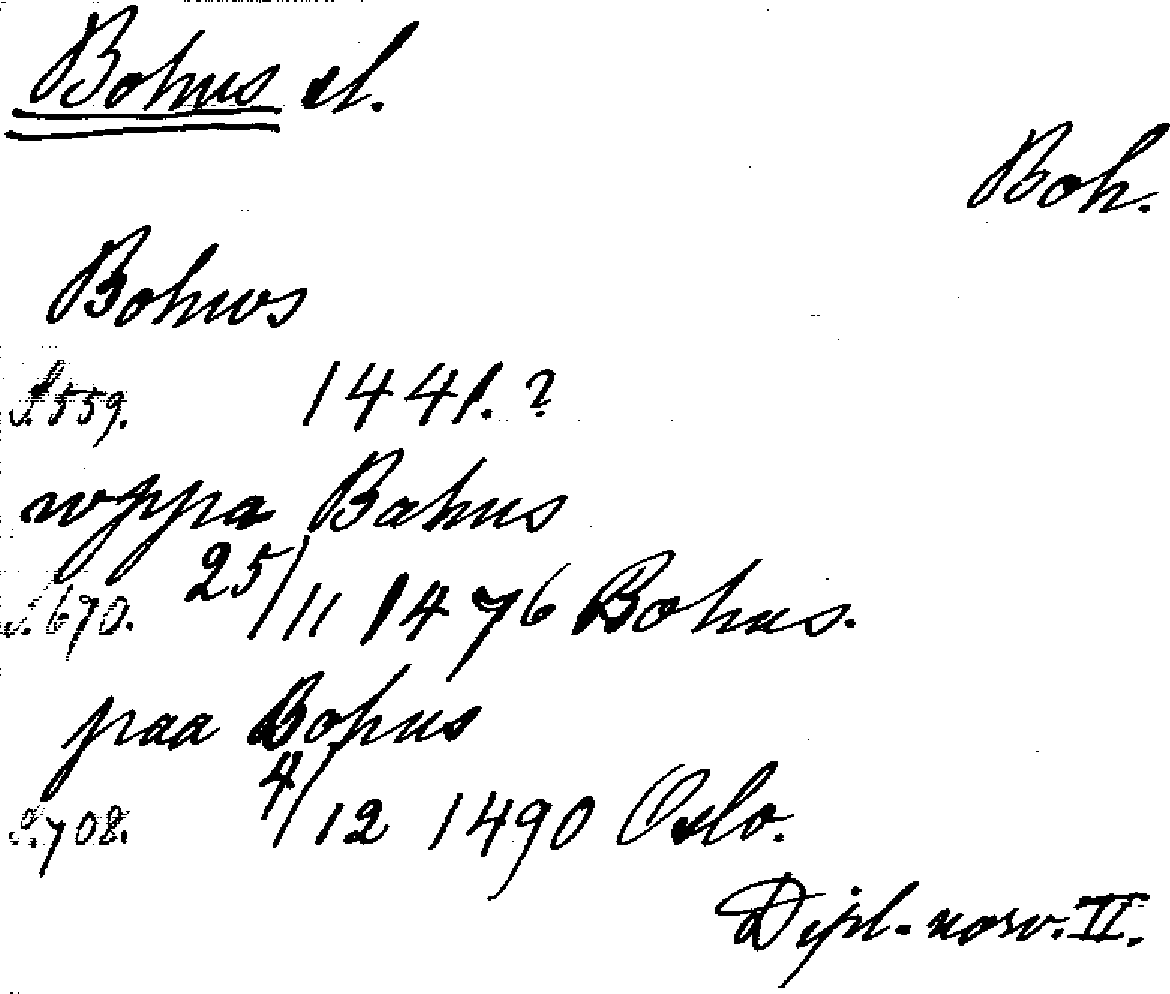 Bohus sl.
Boh.
Bohws
S. 559. 1441.?
wppa Bahus
S. 670. 25/11 1476 Bohus.
paa Bohus
S. 708. 4/12 1490 Oslo.
Dipl. norv. II.